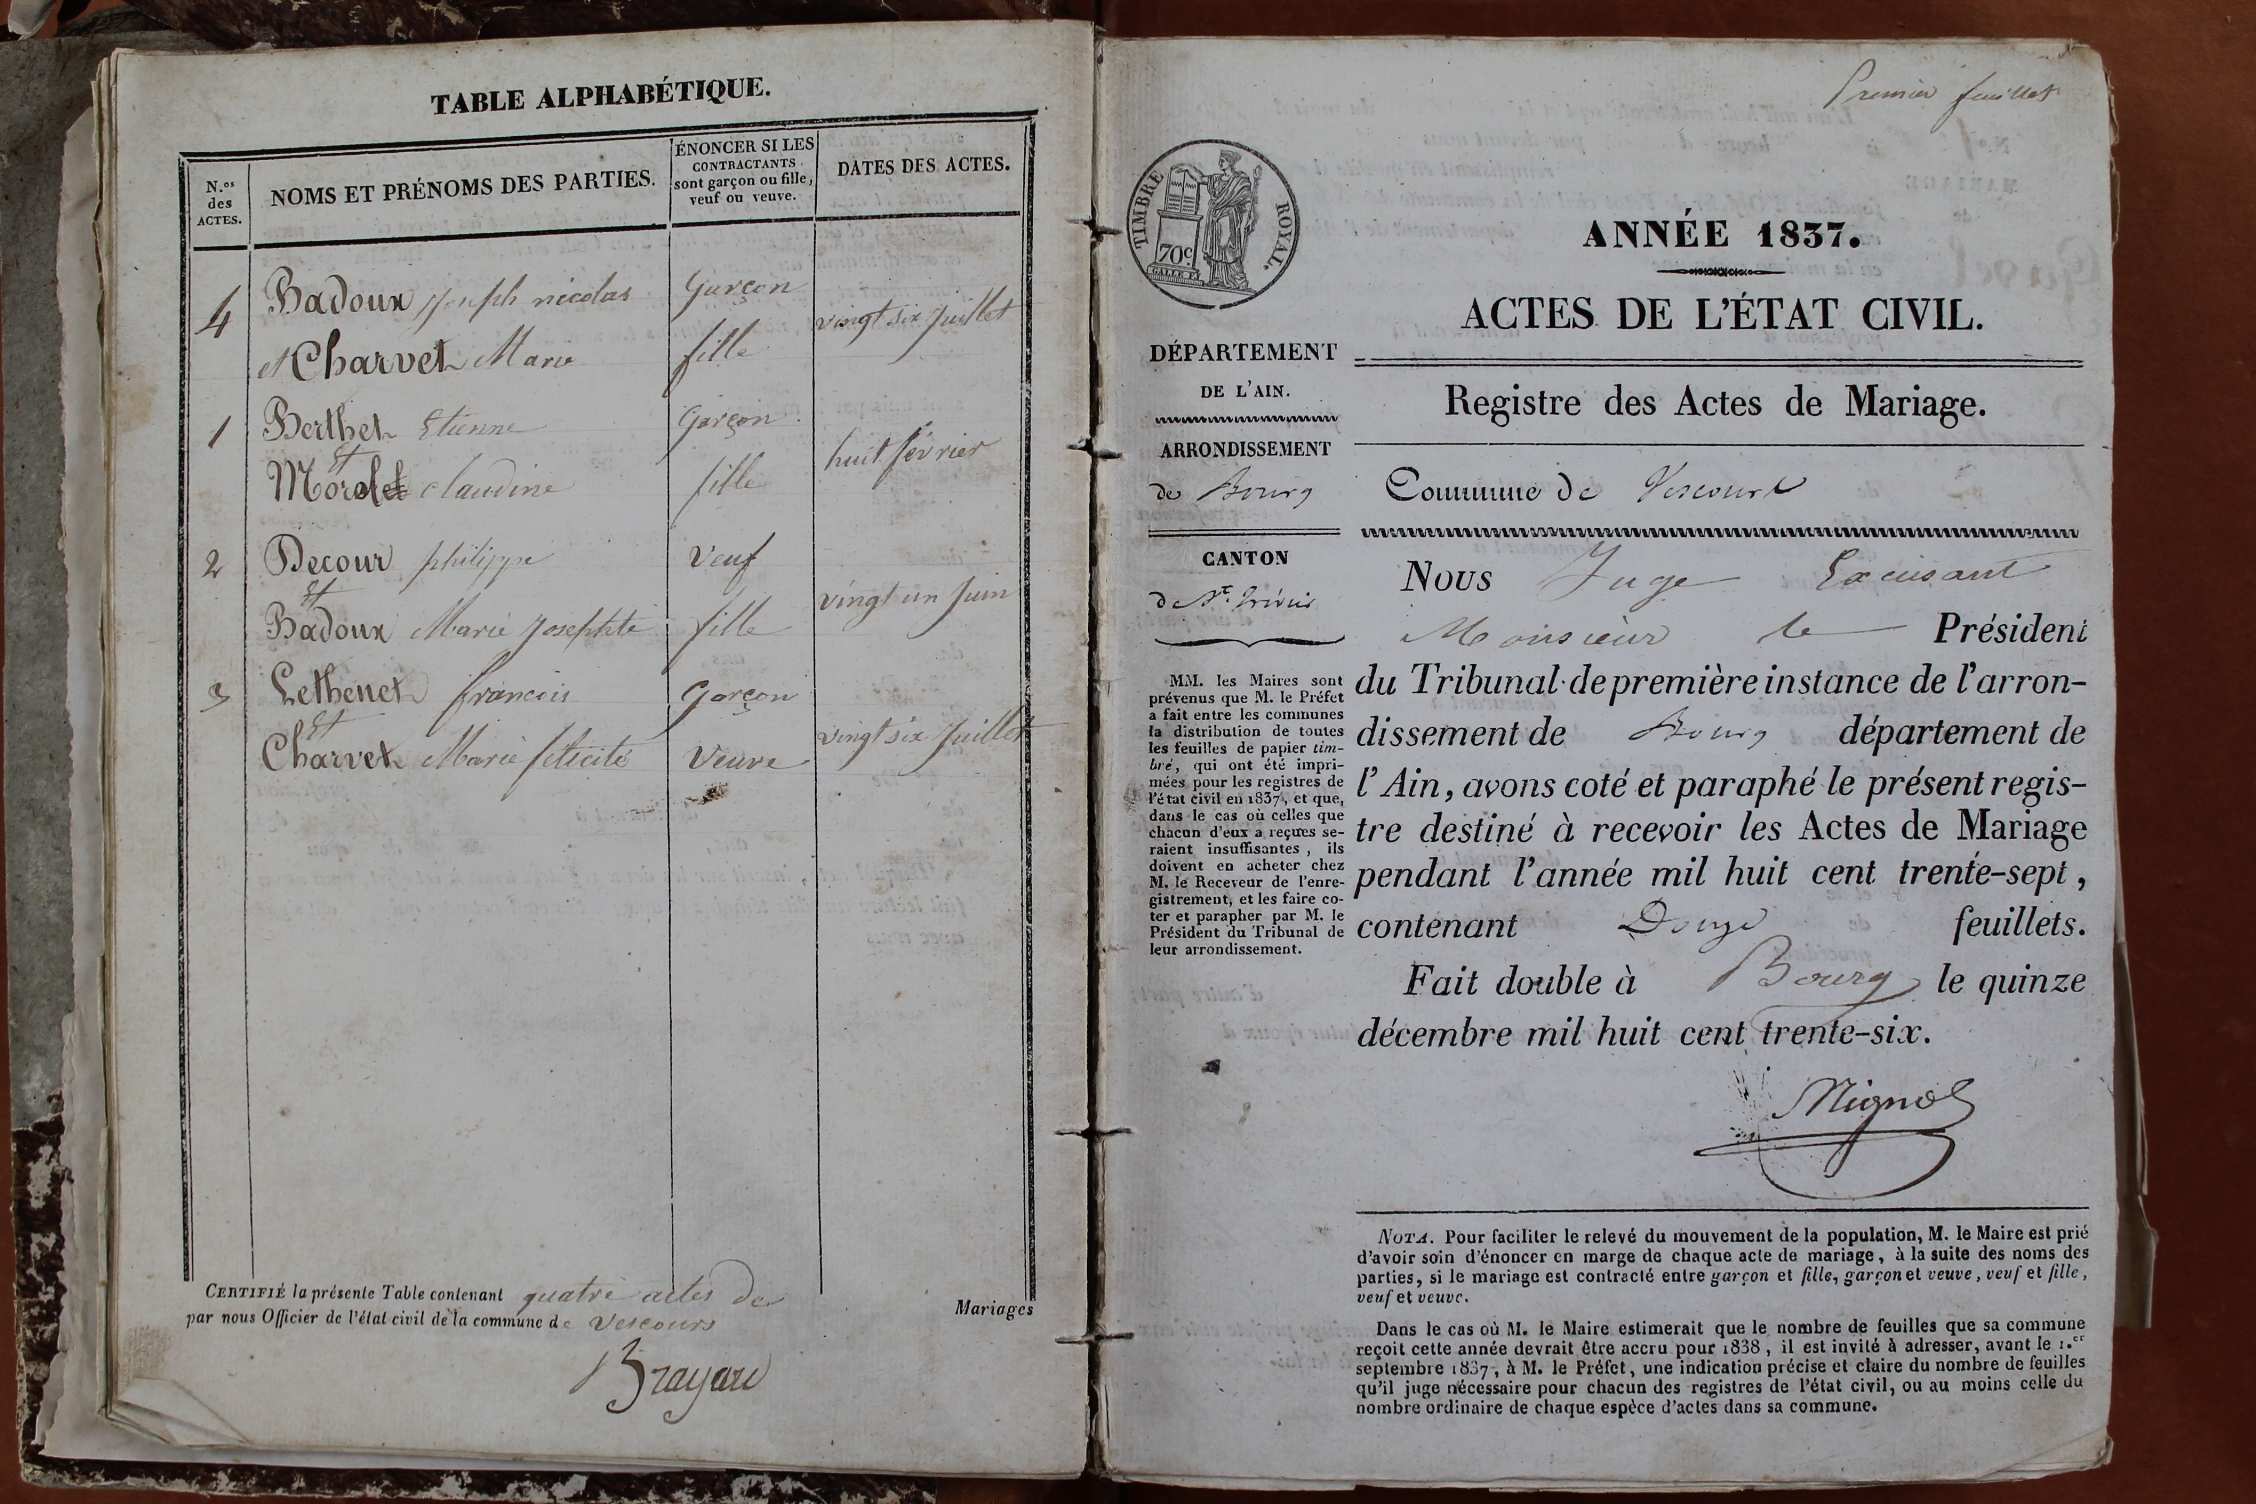 TABLE ALPHABÉTIQUE.
N.os des ACTES.
NOMS ET PRÉNOMS DES PARTIES.
ÉNONCER SI LES
CONTRACTANTS
sont garçon ou fille,
veuf ou veuve.
DATES DES ACTES.
4 Badoux Joseph nicolas Garçon
vingt six Juillet
et Charvet Marie fille
1 Berthet Etienne Garçon
Et huit février
Morel claudine fille
2 Decour philippe Veuf
Et vingt un Juin
Badoux Marie Josephte fille
3 Lethenet francois Garçon
Et vingt six Juillet
Charvet Marie félicité Veuve
CERTIFIÉ la présente Table contenant quatre actes de Mariages
par nous Officier de l'état civil de la commune de Vescours
Brayard
Premier feuillet
TIMBRE ROYAL.
70c.
ANNÉE 1837.
ACTES DE L'ÉTAT CIVIL.
DÉPARTEMENT
DE L'AIN.
ARRONDISSEMENT
de Bourg
CANTON
de St. Trivier
MM. les Maires sont
prévenus que M. le Préfet
a fait entre les communes
la distribution de toutes
les feuilles de papier tim-
bré, qui ont été impri-
mées pour les registres de
l'état civil en 1837, et que,
dans le cas où celles que
chacun d'eux a reçues se-
raient insuffisantes, ils
doivent en acheter chez
M. le Receveur de l'enre-
gistrement, et les faire co-
ter et parapher par M. le
Président du Tribunal de
leur arrondissement.
Registre des Actes de Mariage.
Commune de Vescours
Nous Juge Excusant
Monsieur le Président
du Tribunal de première instance de l'arron-
dissement de Bourg département de
l'Ain, avons coté et paraphé le présent regis-
tre destiné à recevoir les Actes de Mariage
pendant l'année mil huit cent trente-sept,
contenant Douze feuillets.
Fait double à Bourg le quinze
décembre mil huit cent trente-six.
NOTA. Pour faciliter le relevé du mouvement de la population, M. le Maire est prié
d'avoir soin d'énoncer en marge de chaque acte de mariage, à la suite des noms des
parties, si le mariage est contracté entre garçon et fille, garçon et veuve, veuf et fille,
veuf et veuve.
Dans le cas où M. le Maire estimerait que le nombre de feuilles que sa commune
reçoit cette année devrait être accru pour 1838, il est invité à adresser, avant le 1.er
septembre 1837, à M. le Préfet, une indication précise et claire du nombre de feuilles
qu'il juge nécessaire pour chacun des registres de l'état civil, ou au moins celle du
nombre ordinaire de chaque espèce d'actes dans sa commune.